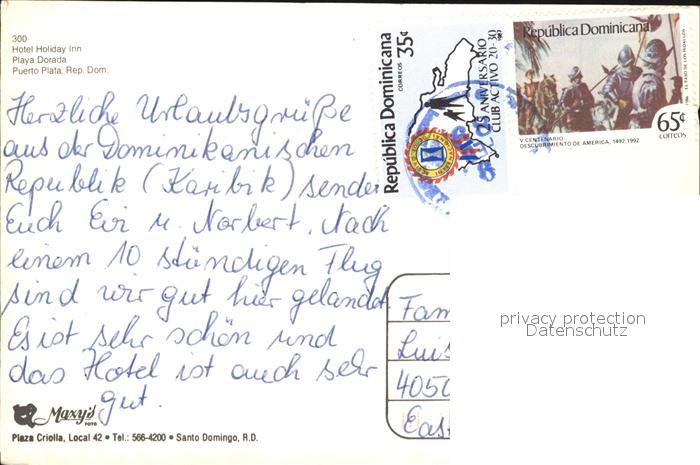 300
Hotel Holiday Inn
Playa Dorada
Puerto Plata, Rep. Dom.
República Dominicana
CORREOS 35¢
25 ANIVERSARIO
CLUB ACTIVO 20-30
República Dominicana
65¢
correos
V CENTENARIO
DESCUBRIMIENTO DE AMERICA, 1492 1992
Herzliche Urlaubsgrüße
aus der Dominikanischen
Republik (Karibik) senden
Euch Evi u. Norbert. Nach
einem 10 stündigen Flug
sind wir gut hier gelandet.
Es ist sehr schön und
das Hotel ist auch sehr
gut.
Fam
Luis
4050
East
privacy protection
Datenschutz
Maxy's
FOTO
Plaza Criolla, Local 42 • Tel.: 566-4200 • Santo Domingo, R.D.